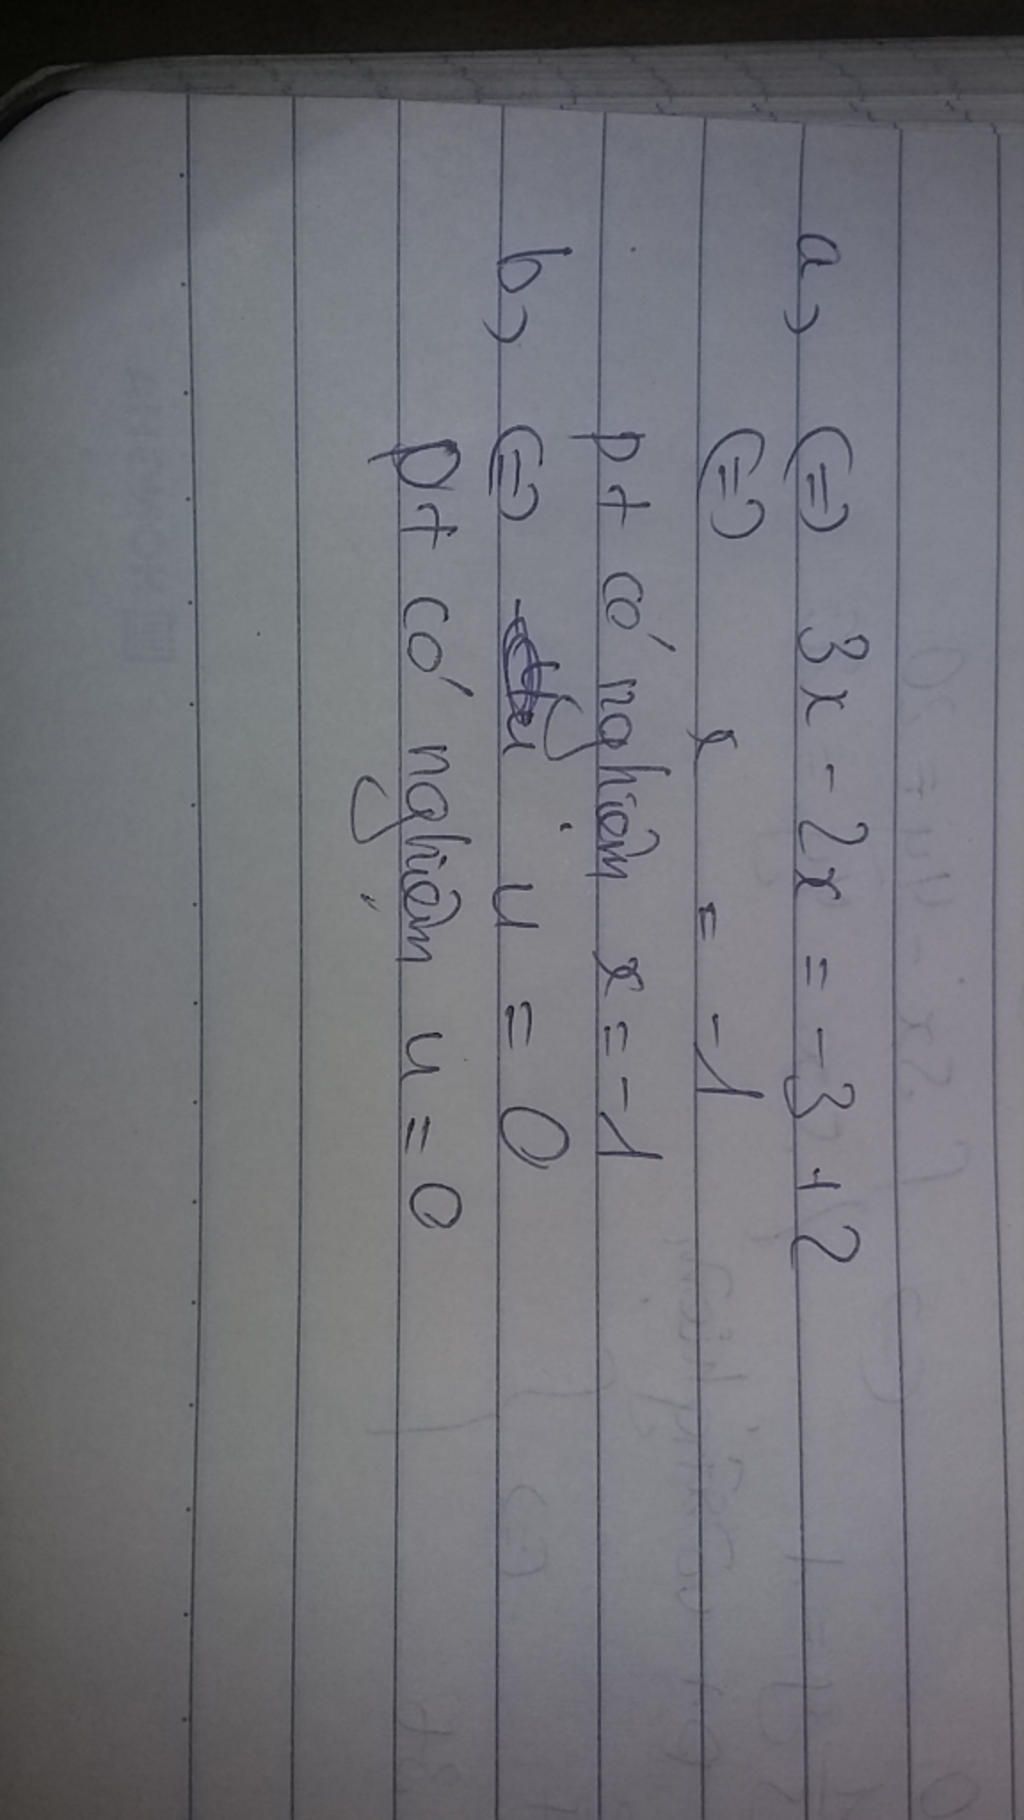 a, <=> 3x - 2x = -3 + 2
<=> x = -1
pt có nghiệm x = -1
b, <=> u = 0
pt có nghiệm u = 0